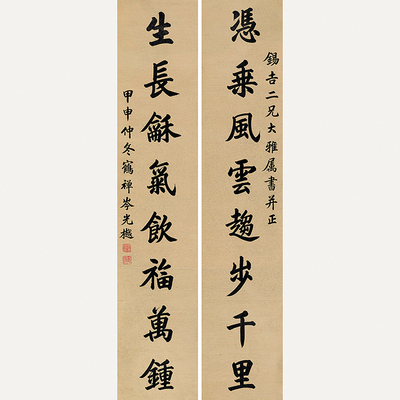 錫吉二兄大雅属書并正
憑乗風雲趨步千里
生長龢氣飲福萬鍾
甲申仲冬鶴禅岑光樾